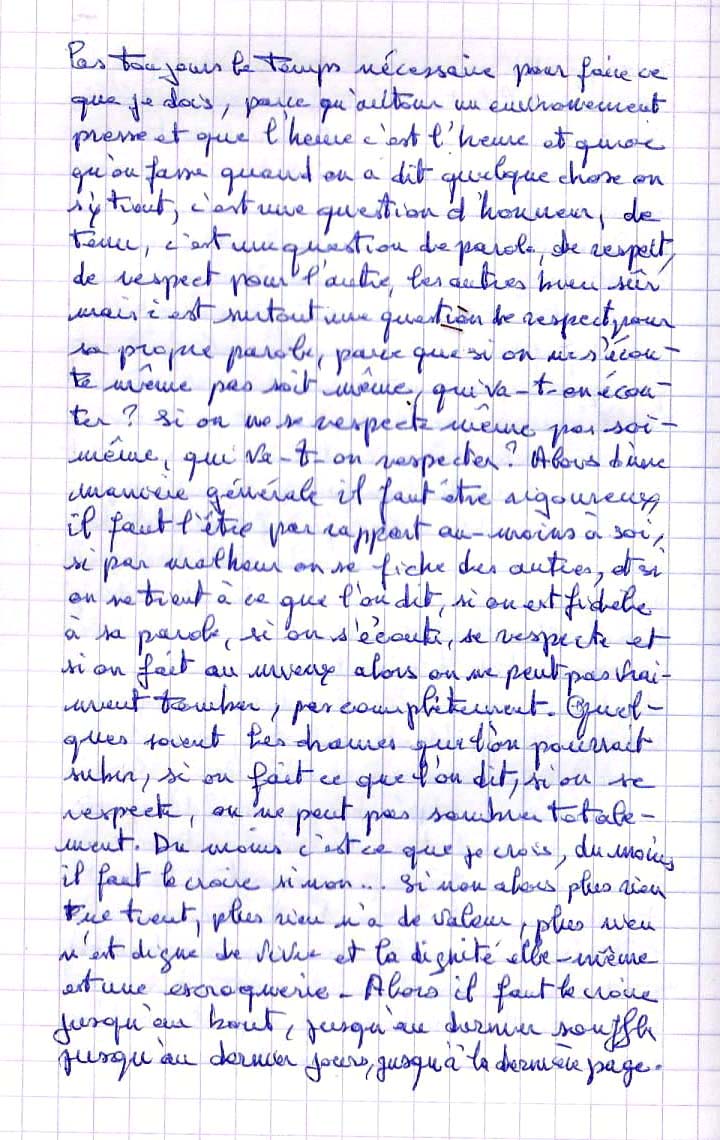 Pas toujours le temps nécessaire pour faire ce
que je dois, parce qu'autour un environnement
presse et que l'heure c'est l'heure et quoi
qu'on fasse quand on a dit quelque chose on
s'y tient, c'est une question d'honneur, de
tenue, c'est une question de parole, de respect,
de respect pour l'autre, les autres bien sûr
mais c'est surtout une question de respect pour
sa propre parole, parce que si on ne s'écou-
te même pas soit même, qui va-t-on écou-
ter ? Si on ne se respecte même pas soi-
même, qui va-t-on respecter ? Alors d'une
manière générale il faut être rigoureux,
il faut l'être par rapport au-moins à soi,
si par malheur on se fiche des autres, et si
on se tient à ce que l'on dit, si on est fidèle
à sa parole, si on s'écoute, se respecte et
si on fait au mieux alors on ne peut pas vrai-
ment tomber, pas complètement. Quel-
ques soient les drames que l'on pourrait
subir, si on fait ce que l'on dit, si on se
respecte, on ne peut pas sombrer totale-
ment. Du moins c'est ce que je crois, du moins
il faut le croire sinon... Si non alors plus rien
ne tient, plus rien n'a de valeur, plus rien
n'est digne de vivre et la dignité elle-même
est une escroquerie - Alors il faut le croire
jusqu'au bout, jusqu'au dernier souffle
jusqu'au dernier jours, jusqu'à la dernière page.